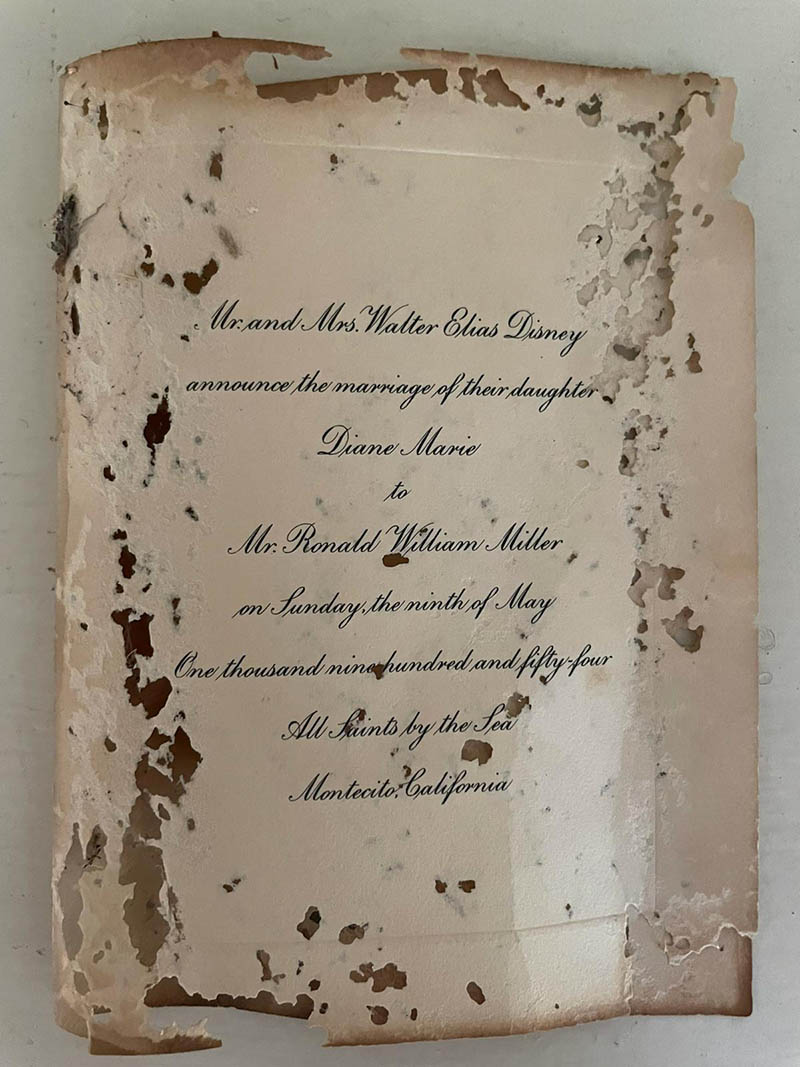 Mr. and Mrs. Walter Elias Disney
announce the marriage of their daughter
Diane Marie
to
Mr. Ronald William Miller
on Sunday, the ninth of May
One thousand nine hundred and fifty-four
All Saints by the Sea
Montecito, California